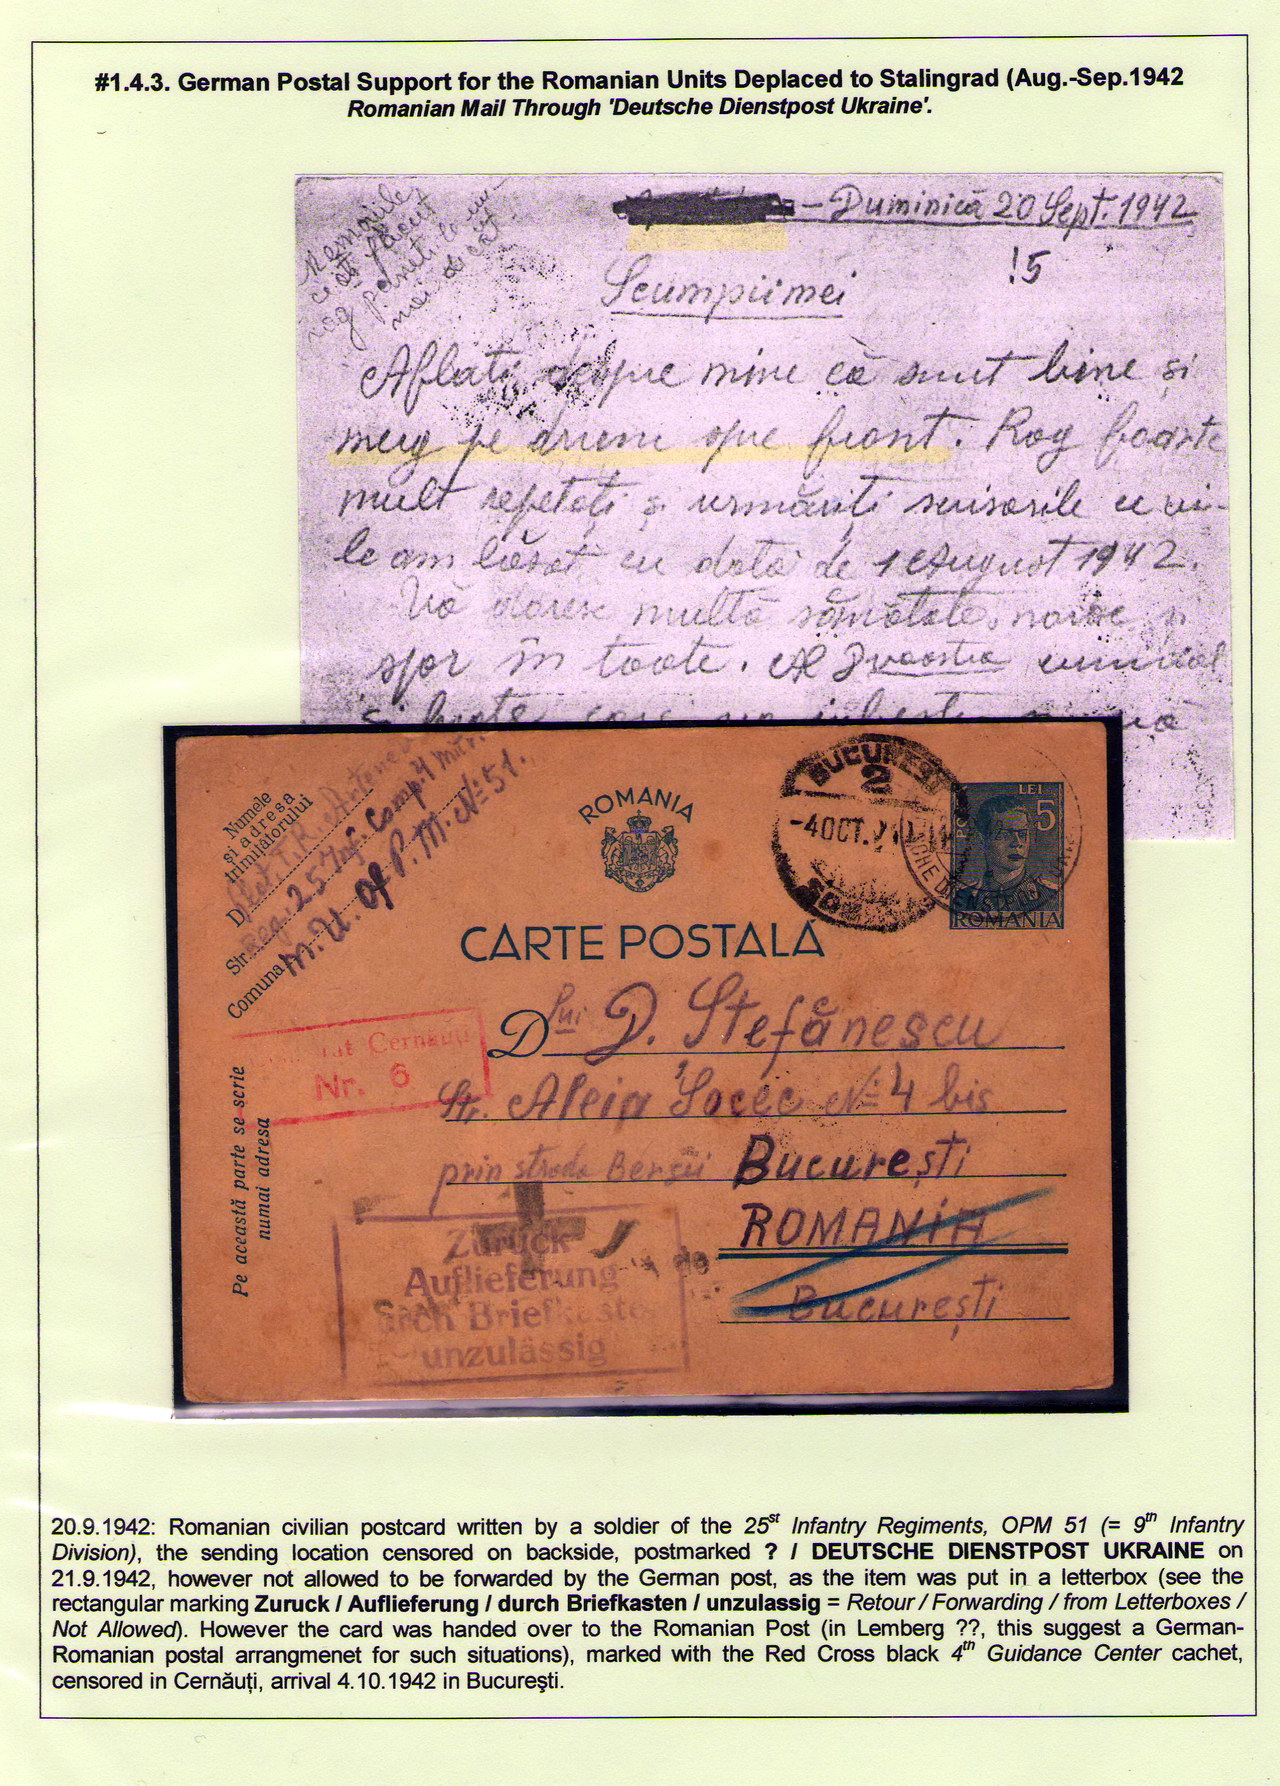 #1.4.3. German Postal Support for the Romanian Units Deplaced to Stalingrad (Aug.-Sep.1942
Romanian Mail Through 'Deutsche Dienstpost Ukraine'.
– Duminică 20 Sept. 1942
!5
Scumpii mei
Aflați despre mine că sunt bine și
merg pe drum spre front. Rog foarte
mult repetați și urmăriți scrisorile ce vi-
le am lăsat cu data de 1 August 1942.
Vă doresc multă sănătate, noroc și
spor în toate. Al Dvoastră
Numele
și adresa
trimițătorului
D
Str. Reg. 25 Inf. Comp. 4
Comuna M. U. Of P. M. № 51.
ROMANIA
BUCUREȘTI
2
-4 OCT.
LEI 5
ROMANIA
CARTE POSTALĂ
D lui D. Ștefănescu
Cernăuți
Nr. 6
Str. Aleia Socec № 4 bis
prin strada Bersii București
ROMANIA
București
Pe această parte se scrie
numai adresa
Zurück
Auflieferung
durch Briefkasten
unzulässig
20.9.1942: Romanian civilian postcard written by a soldier of the 25st Infantry Regiments, OPM 51 (= 9th Infantry
Division), the sending location censored on backside, postmarked ? / DEUTSCHE DIENSTPOST UKRAINE on
21.9.1942, however not allowed to be forwarded by the German post, as the item was put in a letterbox (see the
rectangular marking Zuruck / Auflieferung / durch Briefkasten / unzulassig = Retour / Forwarding / from Letterboxes /
Not Allowed). However the card was handed over to the Romanian Post (in Lemberg ??, this suggest a German-
Romanian postal arrangmenet for such situations), marked with the Red Cross black 4th Guidance Center cachet,
censored in Cernăuți, arrival 4.10.1942 in București.